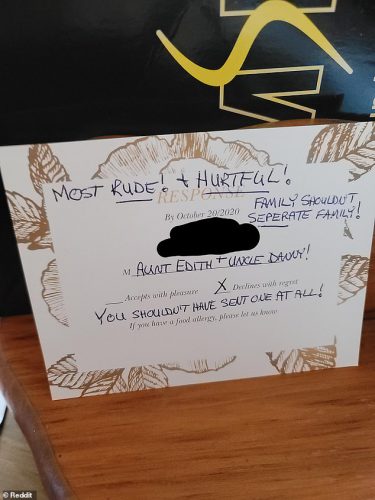 MOST RUDE! + HURTFUL!
RESPONSE
FAMILY SHOULDN'T
SEPERATE FAMILY!
By October 20/2020
M AUNT EDITH + UNCLE DANNY!
Accepts with pleasure X Declines with regret
YOU SHOULDN'T HAVE SENT ONE AT ALL!
If you have a food allergy, please let us know
© Reddit